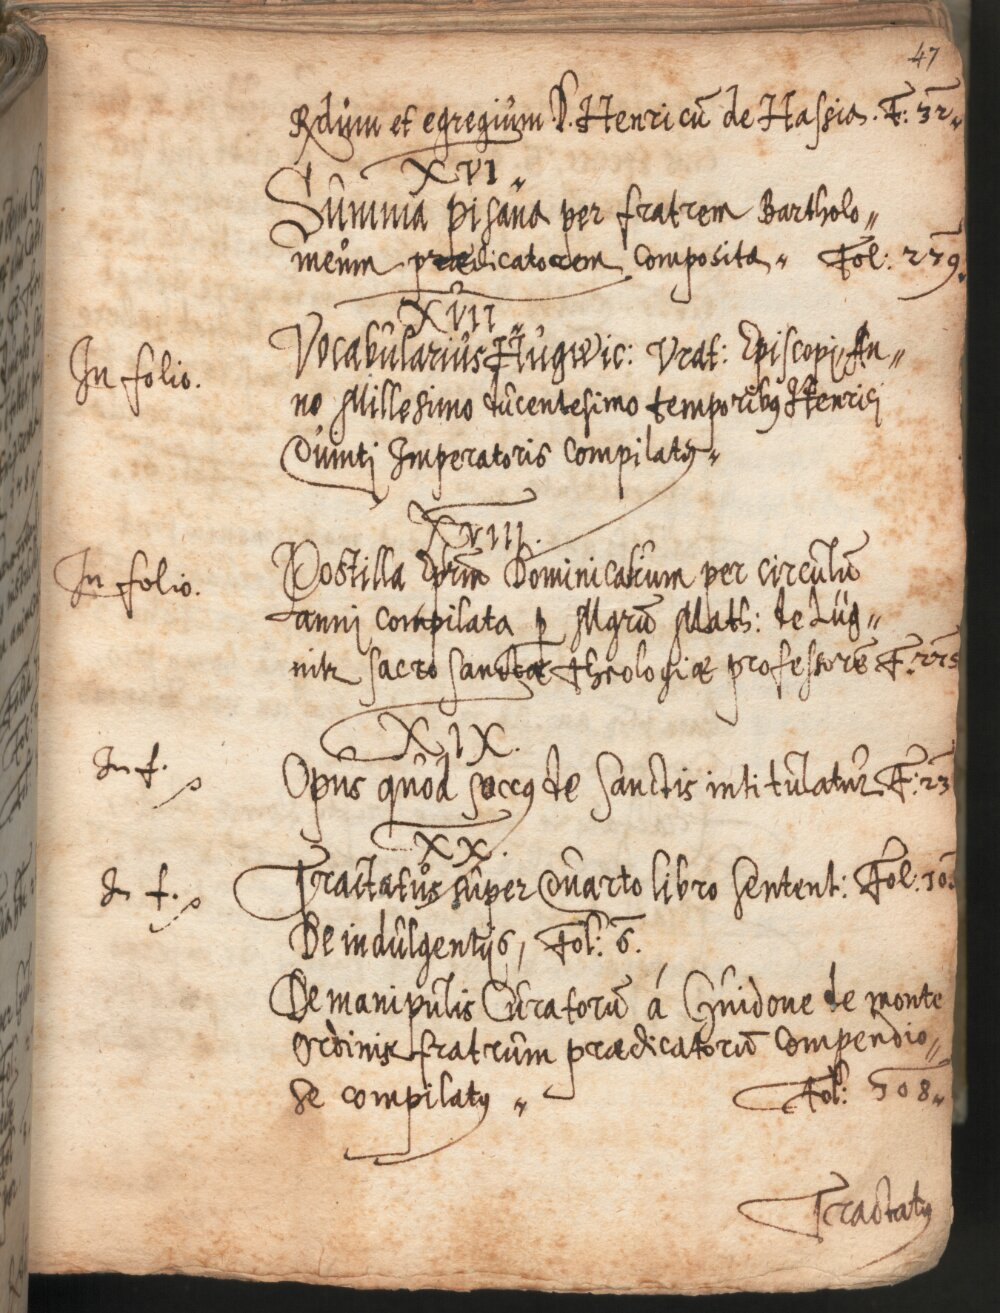 47
Rdũm et egregiũm D. Henricũ de Hassia. F: 32
XVI
Sũmma pisana per fratrem Bartholo„
meũm prædicatorem composita„ Fol: 279.
XVII
In folio. Vocabũlariũs Hũgwic: Vrat: Episcopi, An„
no Millesimo dũcentesimo temporibꝯ Henrici
Qũinti Imperatoris compilatꝯ„
XVIII.
In folio. Postilla Eprm Dominicaliũm per circũlũ
anni compilata ꝑ Mgrũ Math: de Lüg„
nitz sacro sanctæ theologiæ professorẽ F. 225
XIX.
In f. Opus qũod soccꝯ de Sanctis intitũlatũr F: 23
XX.
In f. Tractatũs sũper Qũarto libro Sentent: Fol: 30
De indũlgentijs, Fol: 6.
De manipũlis Cũratorũ á Gũidone de monte
ordinis fratrũm prædicatorũ Compendio„
se compilatꝯ„ Fol: 308„
Tractatꝯ